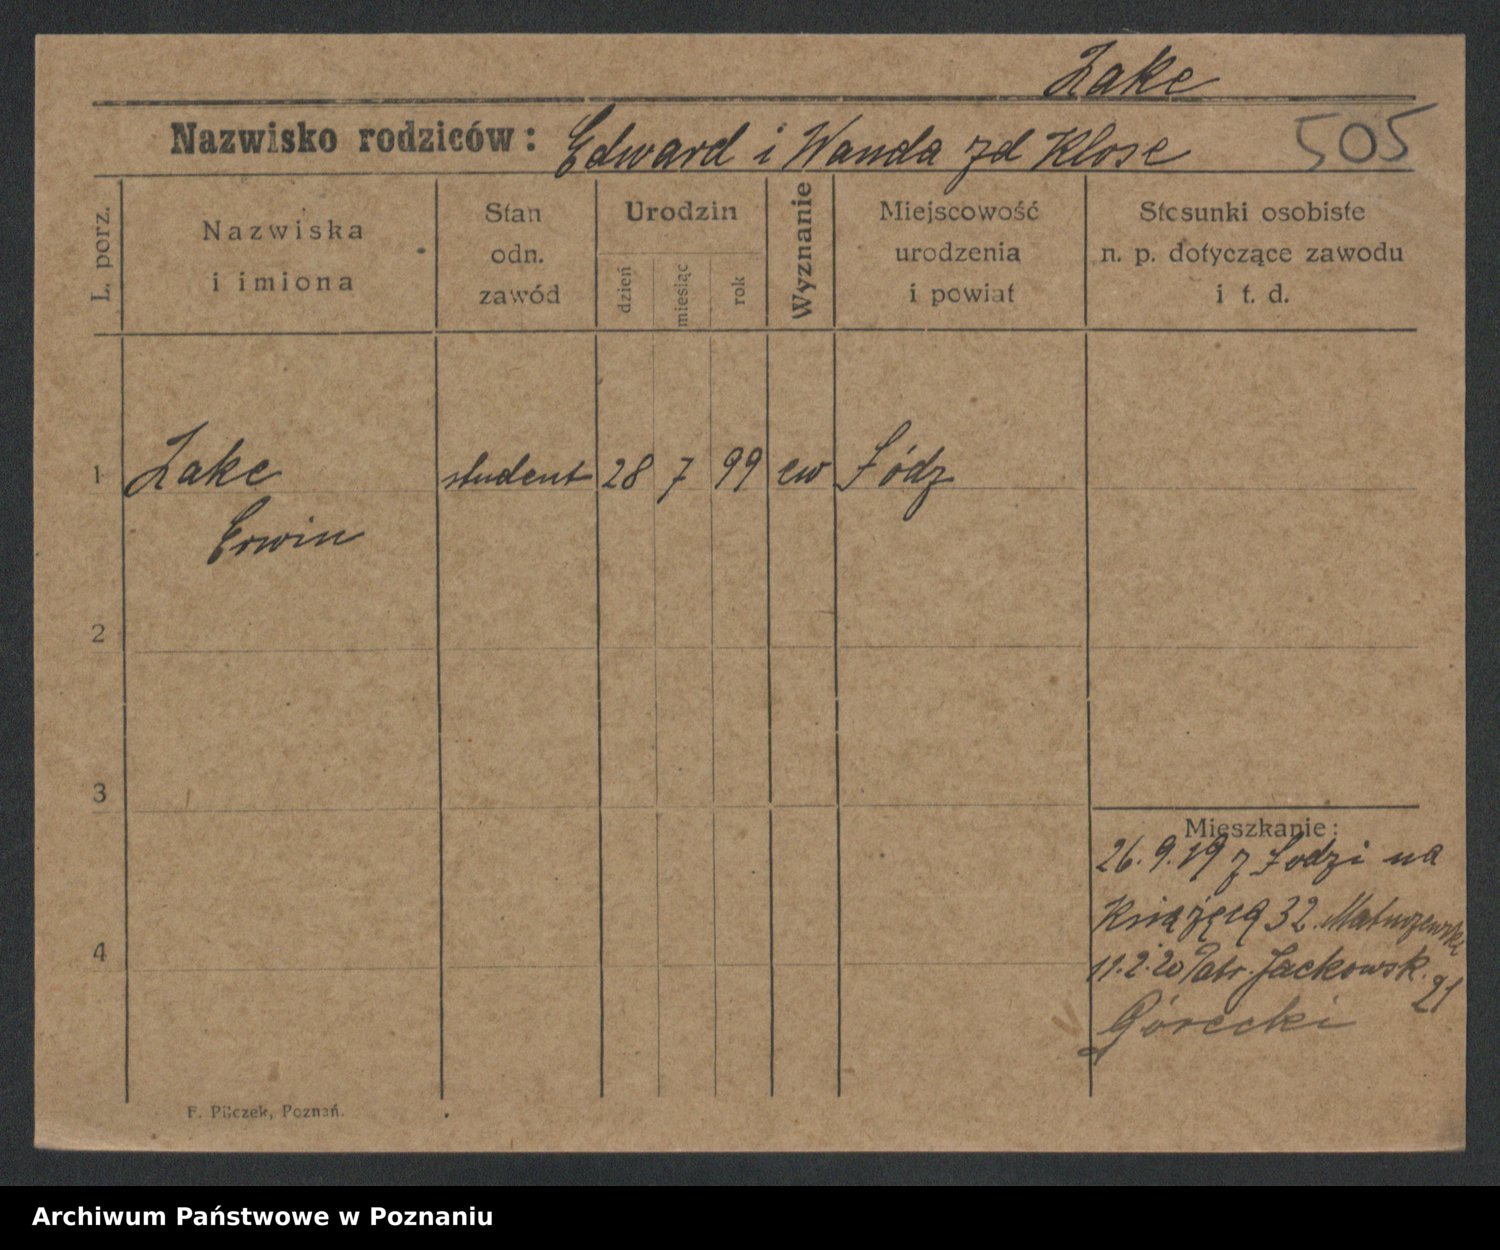 Zake
Nazwisko rodziców: Edward i Wanda zd Klose 505
L. porz.
Nazwiska i imiona
Stan odn. zawód
Urodzin
dzień
miesiąc
rok
Wyznanie
Miejscowość urodzenia i powiat
Stosunki osobiste n. p. dotyczące zawodu i t. d.
1 Zake student 28 7 99 ew Łódz
Erwin
2
3
4
Mieszkanie:
26.9.19 z Łodzi na
Książęcą 32. Matuszewski
11.2.20 Patr. Jackowsk. 21
Górecki
F. Pilczek, Poznań.
Archiwum Państwowe w Poznaniu